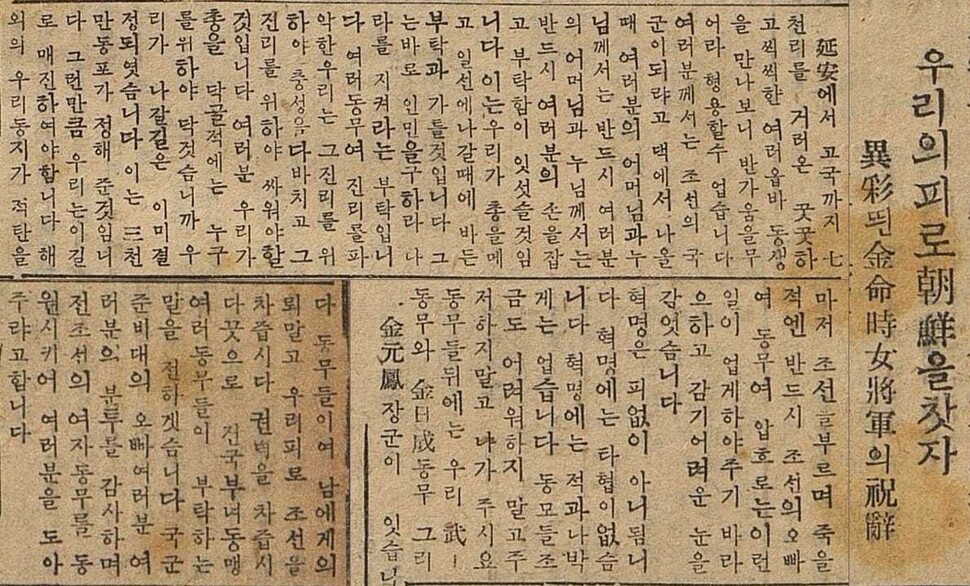 우리의피로朝鮮을찻자
異彩띈金命時女將軍의祝辭
延安에서 고국까지 七
천리를 거러온 꿋꿋하
고씩씩한 여러옵바 동생
을 만나보니 반가움을무
어라 형용할수 업습니다
여러분께서는 조선의 국
군이되랴고 댁에서 나올
때 여러분의 어머님과누
님께서는 반드시 여러분
의 어머님과 누님께서는
반드시 여러분의 손을잡
고 부탁함이 잇섯슬것임
니다 이는우리가 총을메
고 일선에나갈때에 바든
부탁과 가틀것입니다 그
는바로 인민을구하라 나
라를 지켜라는 부탁입니
다 여러동무여 진리를파
악한우리는 그진리를 위
하야 충성을다바치고 그
진리를 위하야 싸워야할
것입니다 여러분 우리가
총을 닥골적에는 누구
를위하야 닥것습니까 우
리가 나갈길은 이미결
정되엿습니다 이는 三천
만동포가 정해 준것임니
다 그런만큼 우리는이길
로 매진하여야합니다 해
외의 우리동지가 적탄을
마저 조선을부르며 죽을
적엔 반드시 조선의오빠
여 동무여 압흐로는이런
일이 업게하야주기 바라
으하고 감기어려운 눈을
감엇슴니다
혁명은 피없이 아니됨니
다 혁명에는 타협이없슴
니다 혁명에는 적과나박
게는 업습니다 동모들조
금도 어려워하지 말고주
저하지말고 나가 주시요
동무들뒤에는 우리 武ㅣ
동무와 金日成동무 그리
金元鳳장군이 잇습니
다 동무들이여 남에게의
뢰말고 우리피로 조선을
차즙시다 권력을 차즙시
다끗으로 전국부녀동맹
여러동무들이 부탁하는
말을 전하겟습니다 국군
준비대의 오빠여러분 여
러분의 분투를 감사하며
전조선의 여자동무를 동
원시키어 여러분을 도아
주랴고합니다